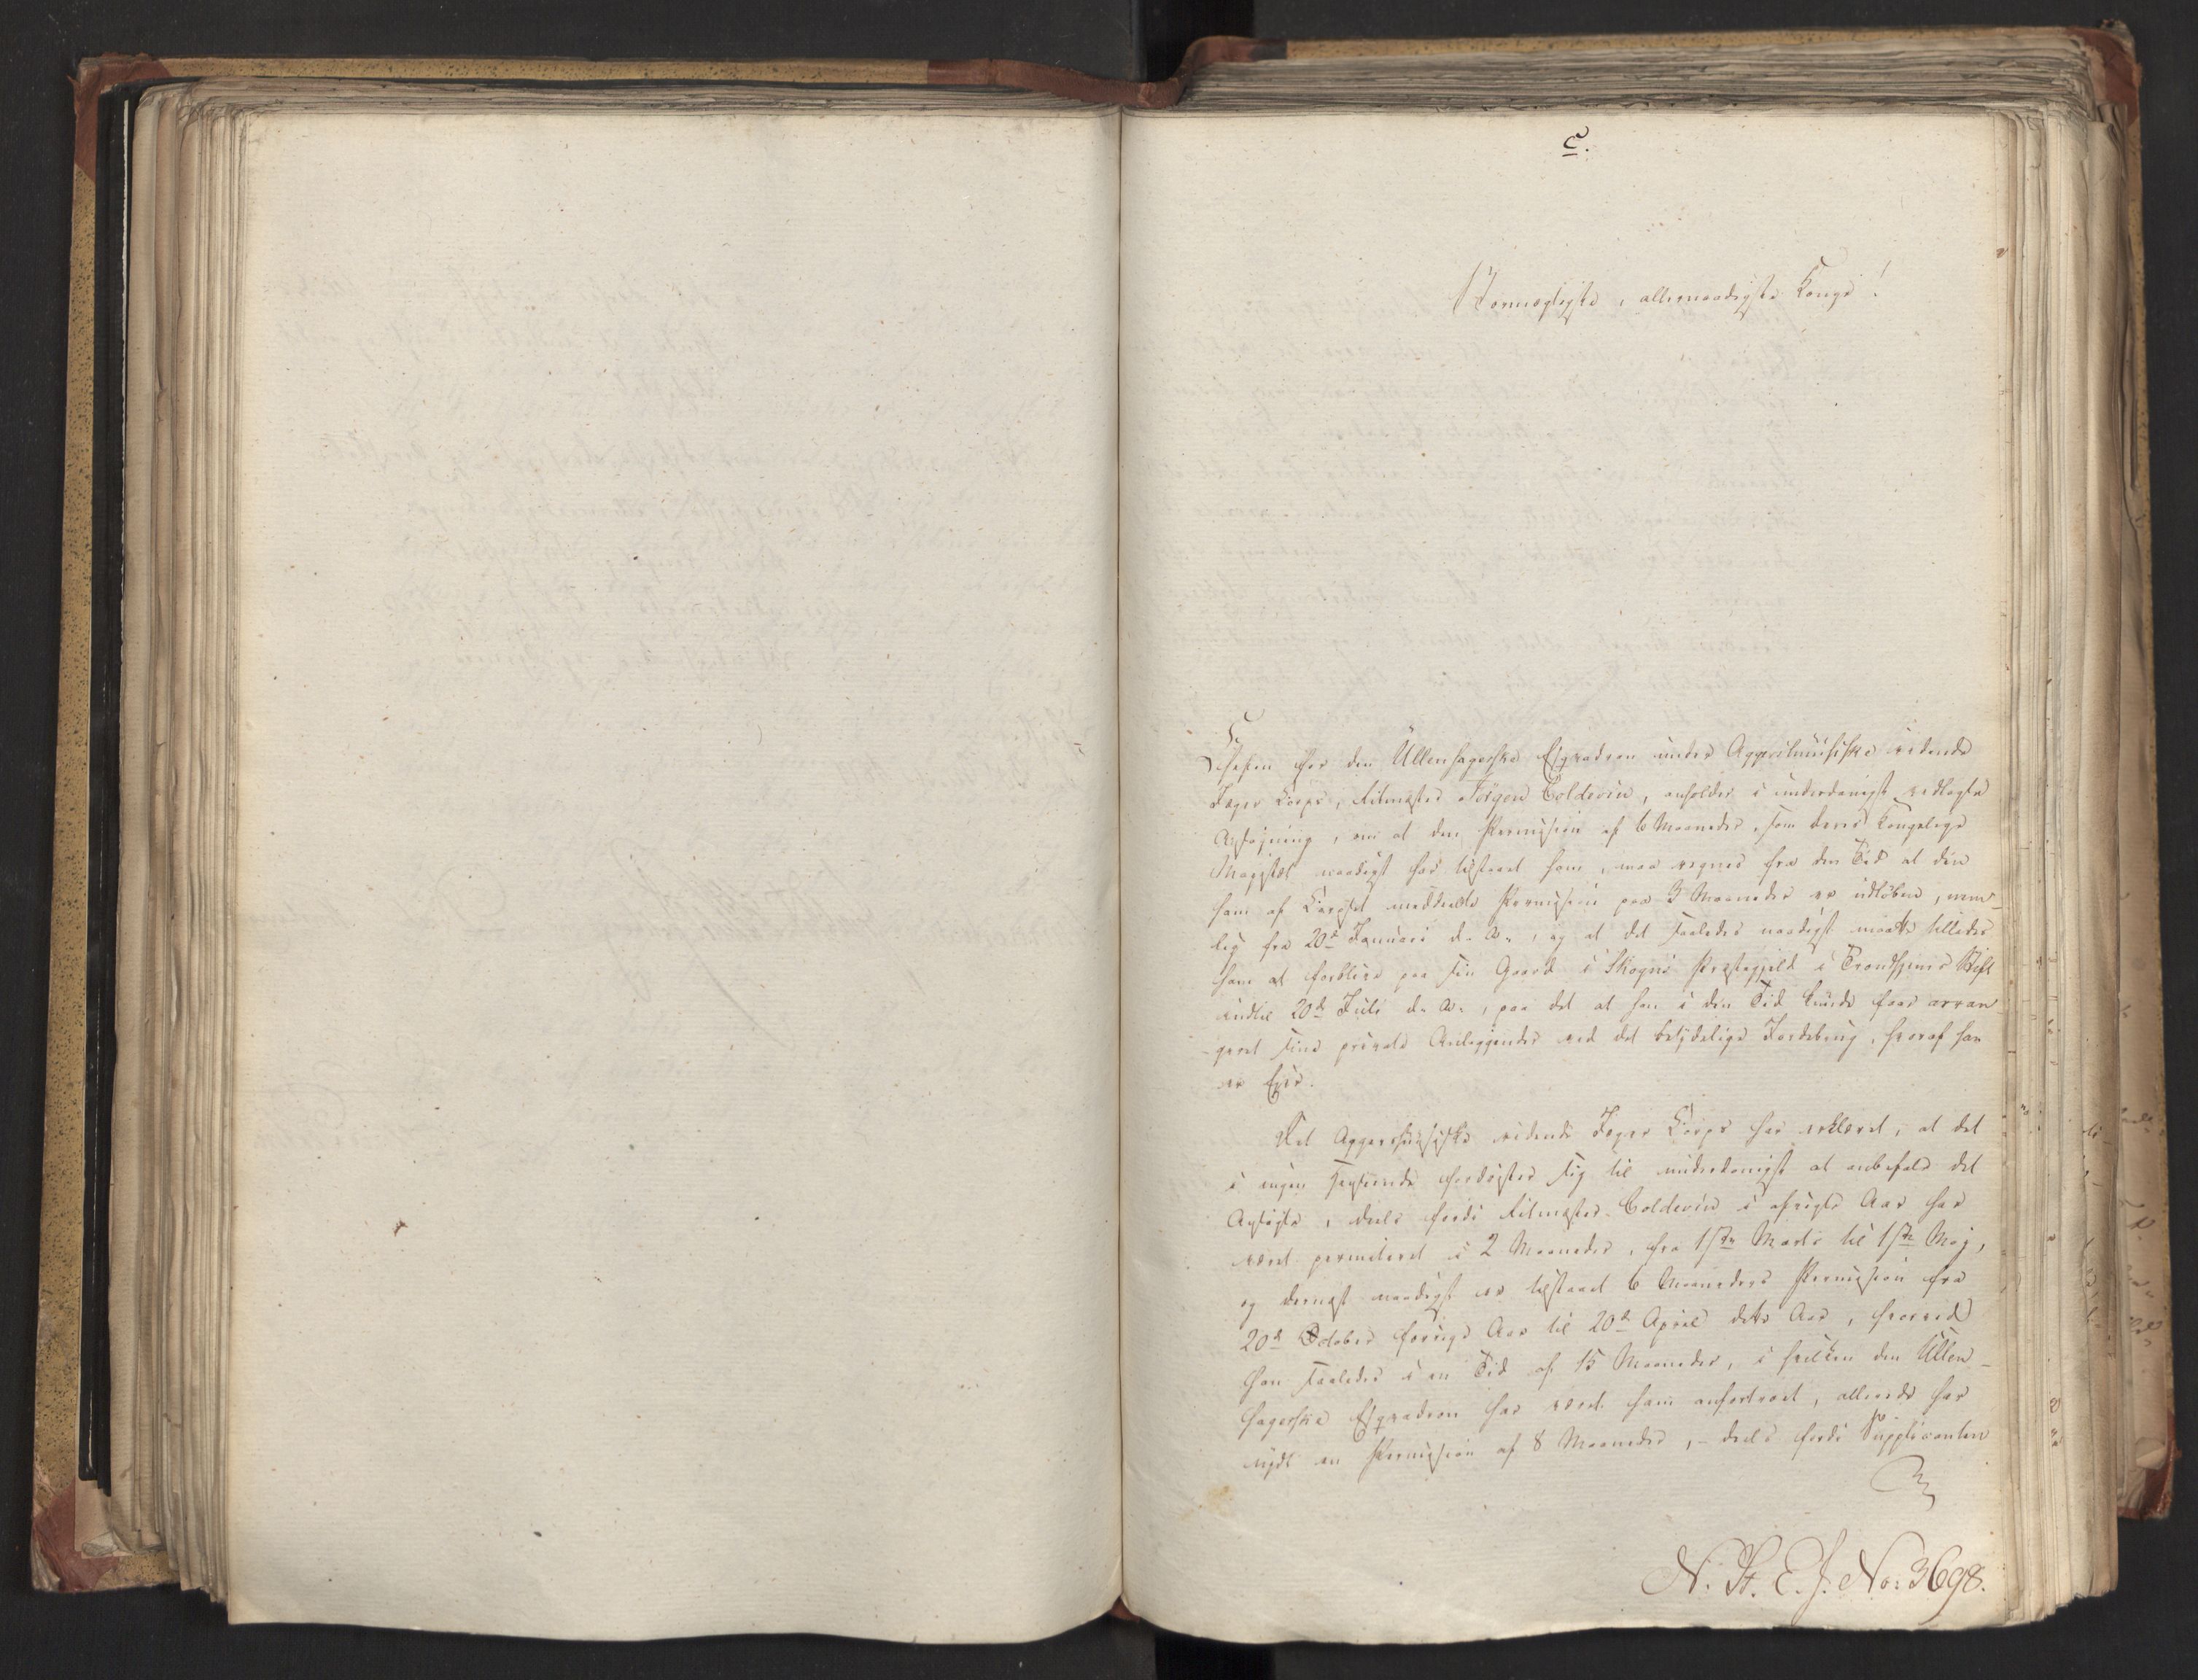 C.
Stormægtigste, allernaadigste Konge!
Chefen for den Ullensagerske Esqvadron under Aggershuusiske ridende
Jæger Corps, Ritmester Jörgen Coldevin, anholder i underdanigst vedlagte
Ansögning, om at den Permission af 6 Maaneder, som Deres Kongelige
Majestæt naadigst har tilstaaet ham, maa regnes fra den Tid at den
ham af Corpset meddeelte Permission paa 3 Maaneder er udlöben, nem-
lig fra 20de Januari d. A., og at det saaledes naadigst maatte tillades
ham at forblive paa sin Gaard i Skogns Præstegjeld i Trondhjems Stift
indtil 20de Juli d. A., paa det at han i den Tid kunde faae arran-
geret sine private Anliggender ved det betydelige Jordebrug, hvoraf han
er Eier.
Det Aggershuusiske ridende Jæger Corps har erklæret, at det
i ingen Henseende fordrister sig til underdanigst at anbefale det
Ansögte, deels fordi Ritmester Coldevin i afvigte Aar har
været permiteret i 2 Maaneder, fra 1ste Marts til 1ste Maj,
og dernæst naadigst er tilstaaet 6 Maaneders Permission fra
20de October forrige Aar til 20de April dette Aar, hvorved
han saaledes i en Tid af 15 Maaneder, i hvilken den Ullen-
sagerske Esqvadron har været ham anfortroet, allerede har
nydt en Permission af 8 Maaneder, - deels fordi Supplicanten
N. St. E. J. No: 3698.